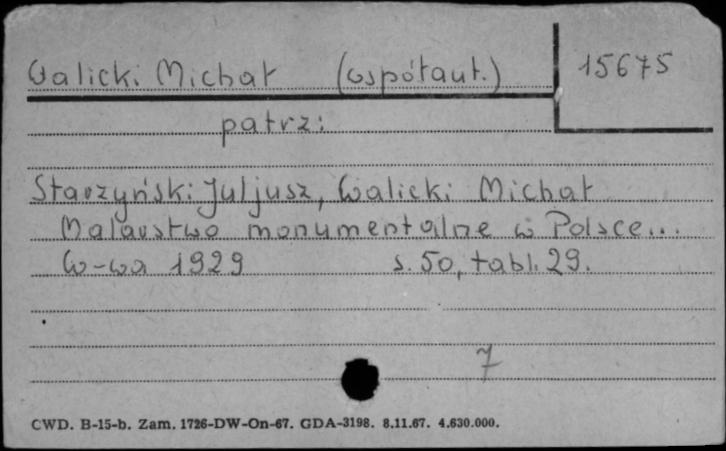 Walicki Michał (współaut.) 15675
patrz:
Starzyński Juljusz, Walicki Michał
Malarstwo monumentalne w Polsce...
W-wa 1929 s. 50, tabl. 29.
7
CWD. B-15-b. Zam. 1726-DW-On-67. GDA-3198. 8.11.67. 4.630.000.